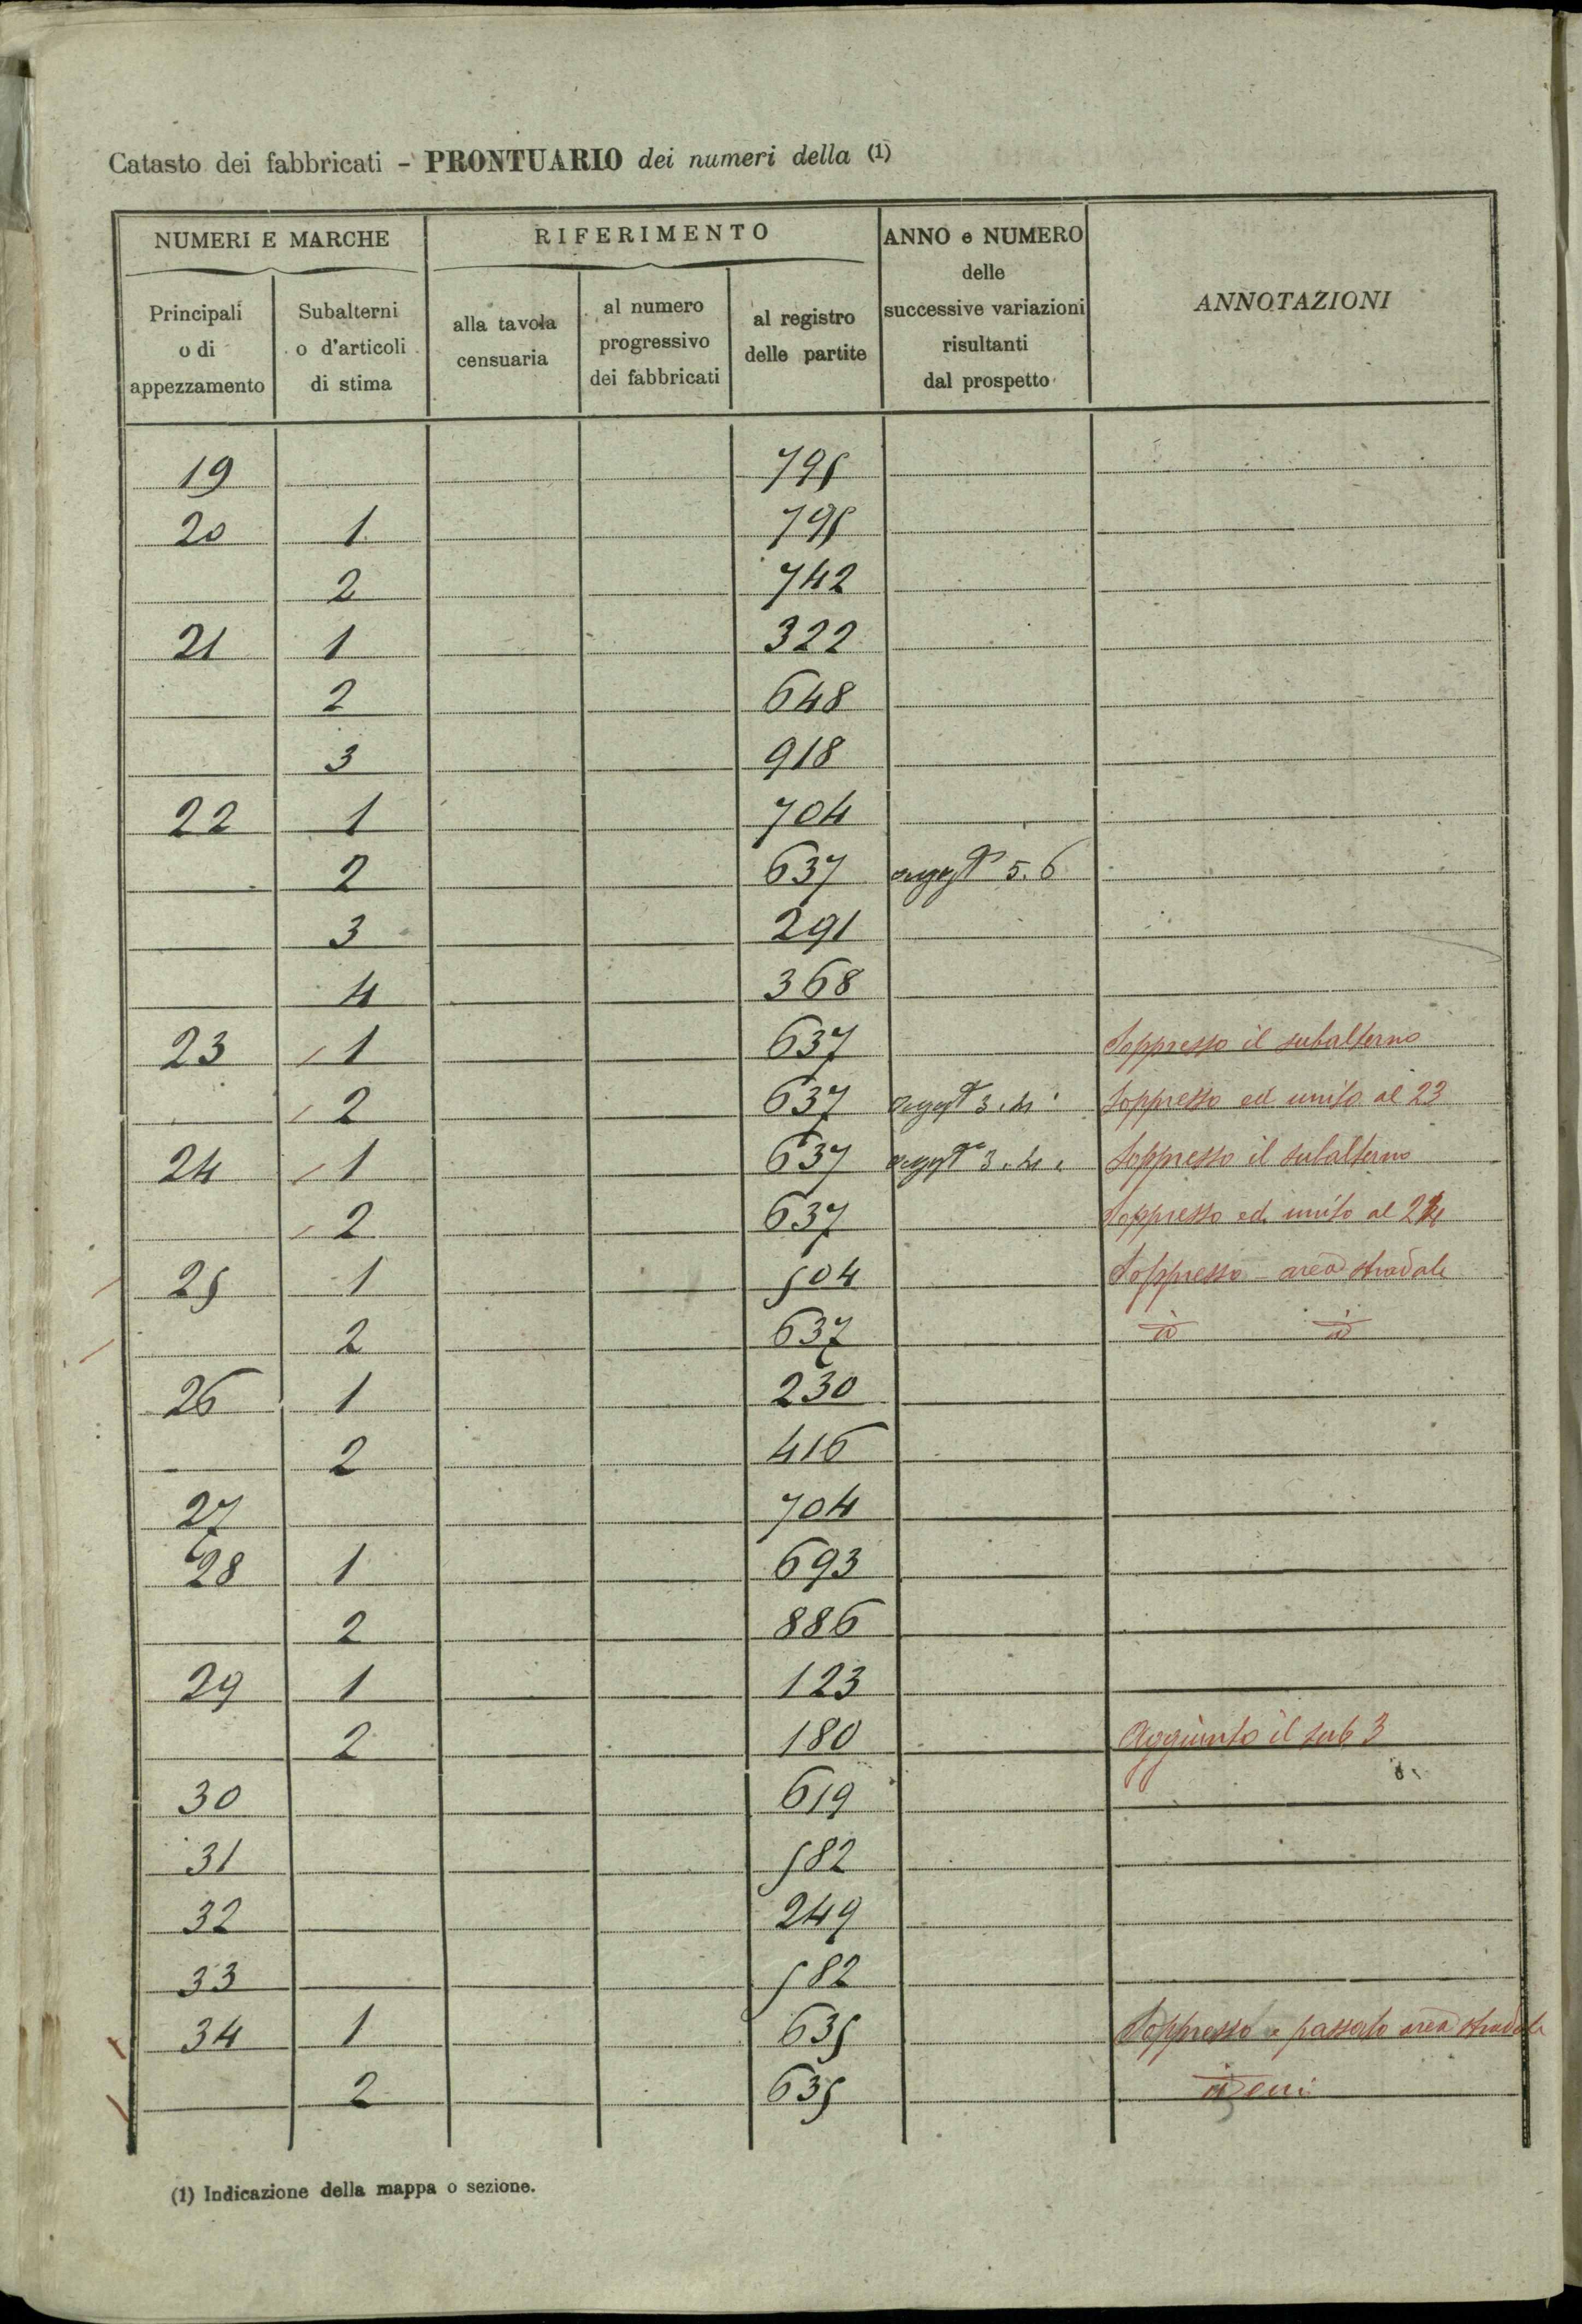 Catasto dei fabbricati - PRONTUARIO dei numeri della (1)
NUMERI E MARCHE
RIFERIMENTO
ANNO e NUMERO
delle
successive variazioni
risultanti
dal prospetto
ANNOTAZIONI
Principali
o di
appezzamento
Subalterni
o d'articoli
di stima
alla tavola
censuaria
al numero
progressivo
dei fabbricati
al registro
delle partite
19 795
20 1 795
2 742
21 1 322
2 648
3 918
22 1 704
2 637 5.6
3 291
4 368
23 1 637 Soppresso il subalterno
2 637 3.4 Soppresso ed unito al 23
24 1 637 3.4 Soppresso il subalterno
2 637 Soppresso ed unito al 24
25 1 504 Soppresso - area stradale
2 637 id id
26 1 230
2 416
27 704
28 1 693
2 886
29 1 123
2 180 Aggiunto il sub 3
30 619
31 582
32 249
33 582
34 1 635 Soppresso e passato area stradale
2 635 idem
(1) Indicazione della mappa o sezione.